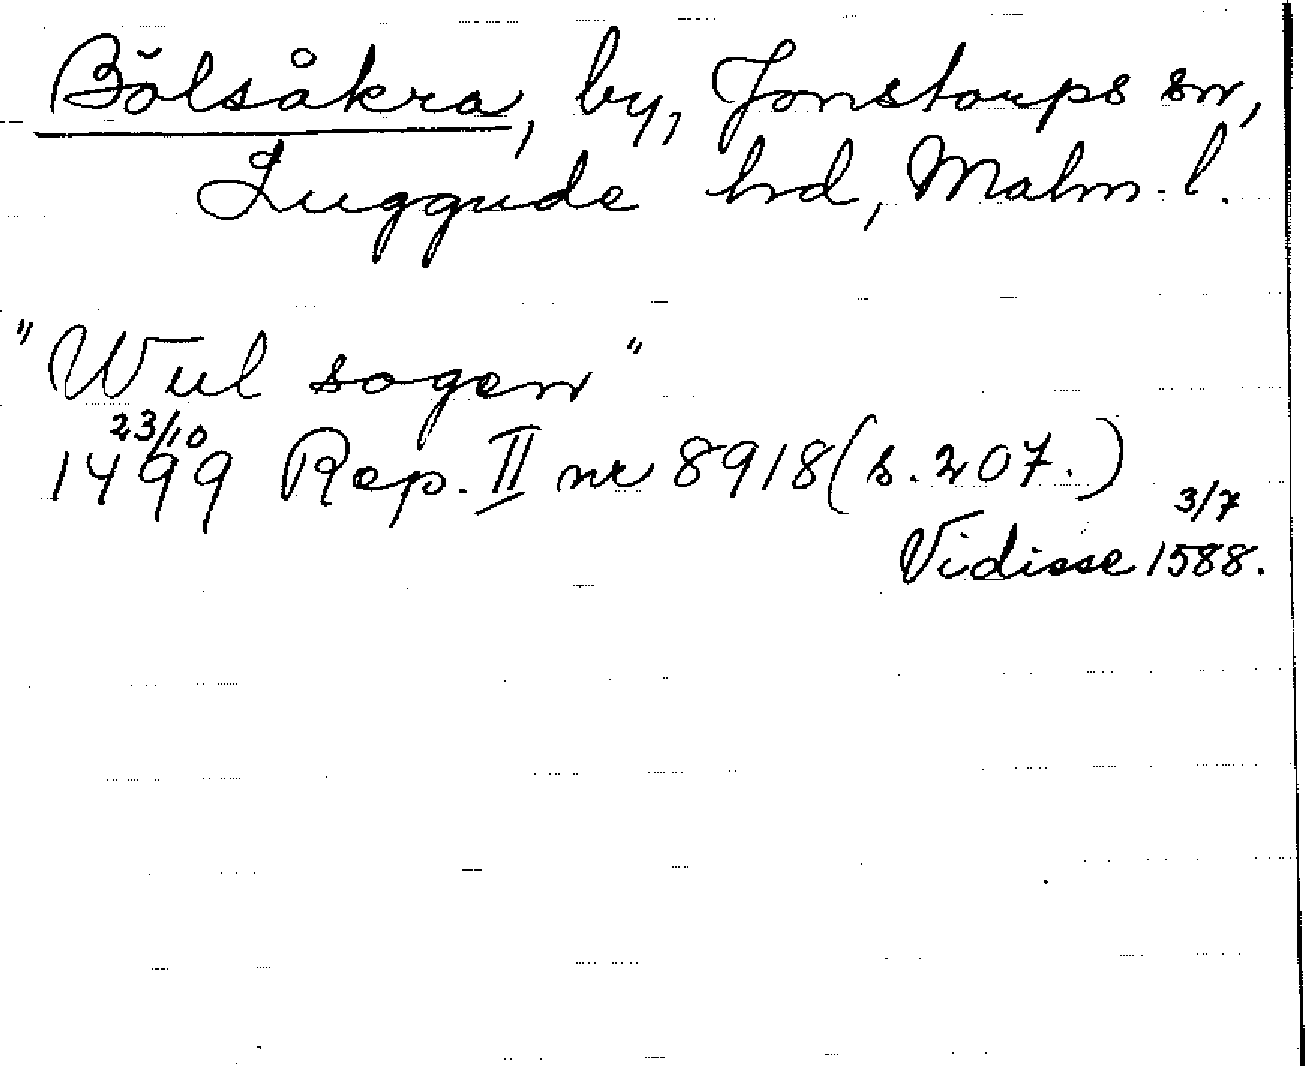 Bölsåkra, by, Jonstorps sn,
Luggude hd, Malm. l.
"Wul sogen"
1499 23/10 Rep. II nr 8918 (s. 207.)
Vidisse 3/7 1588.